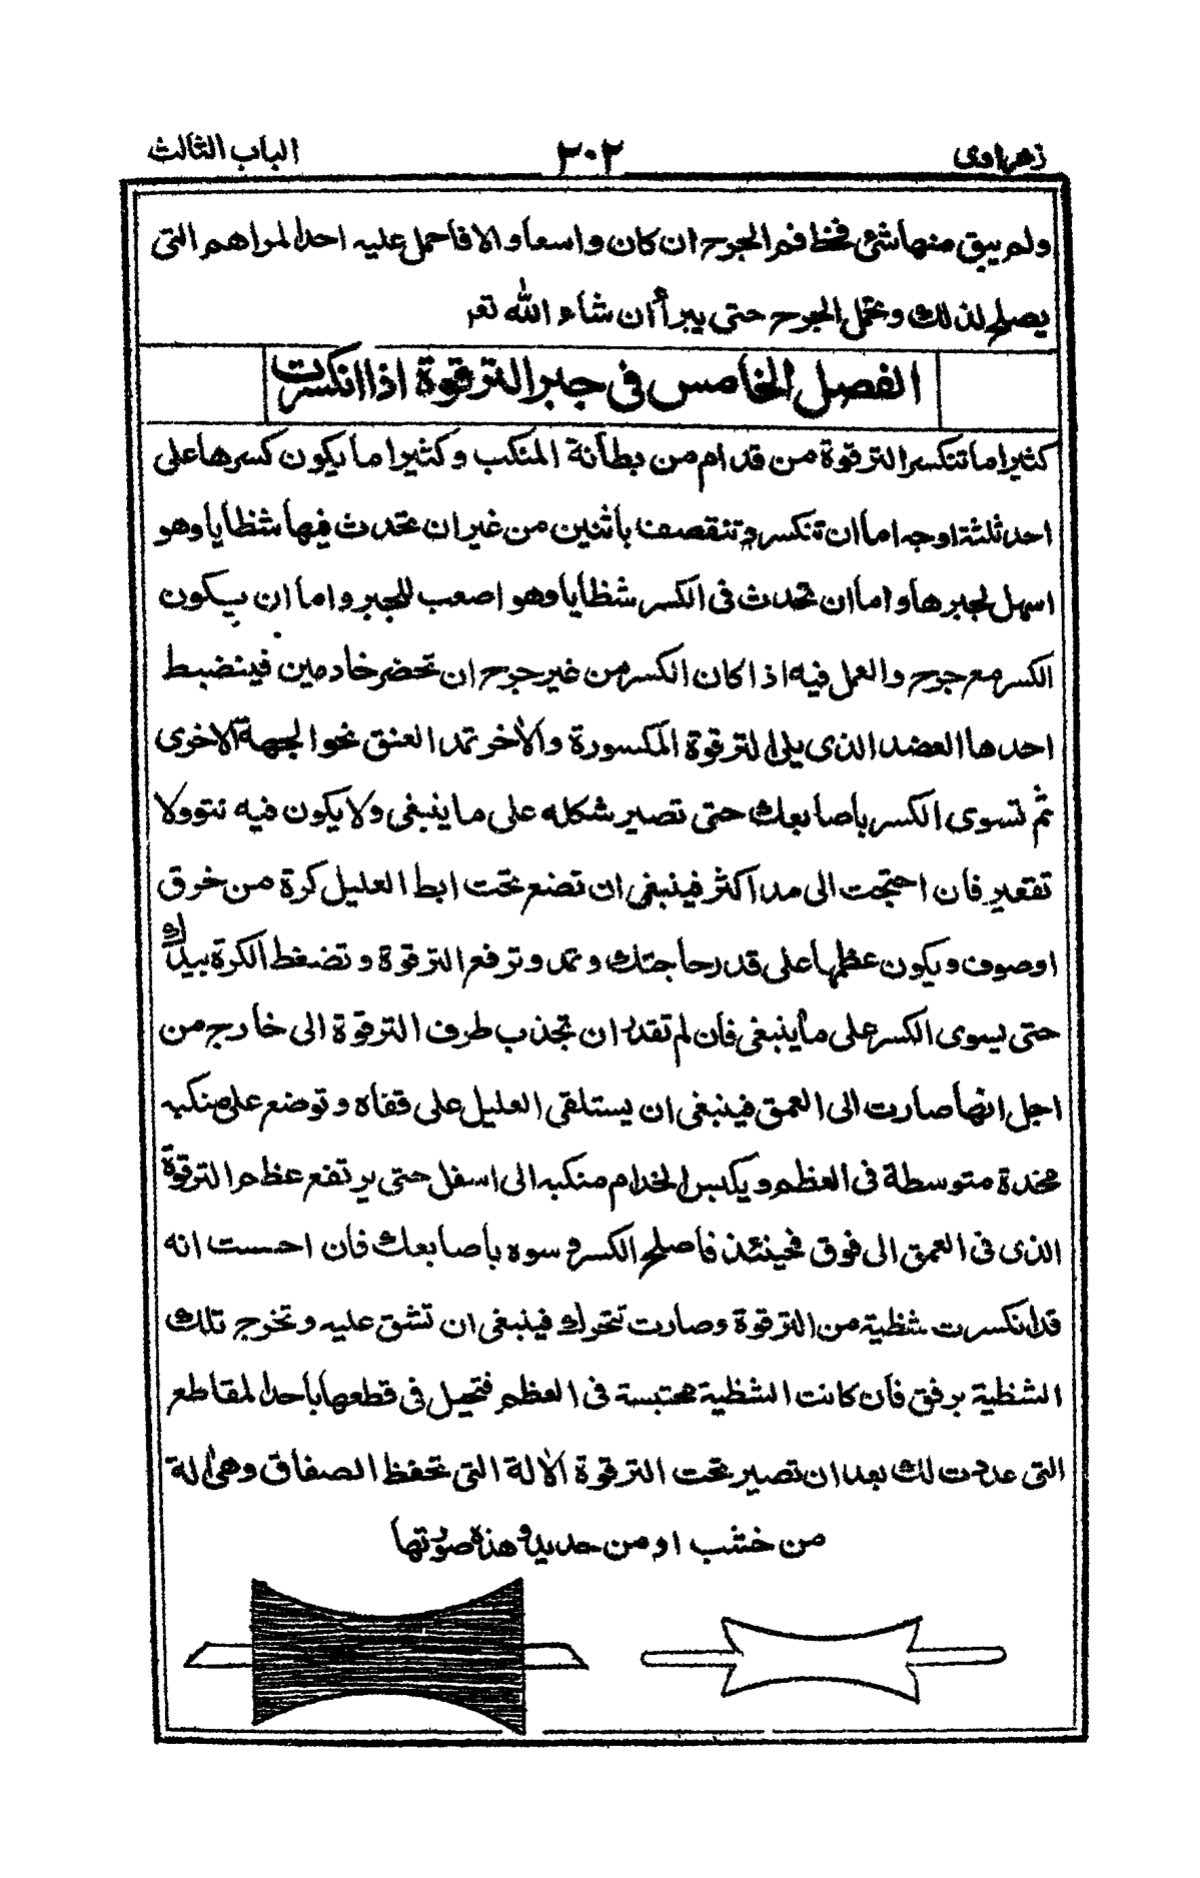 زهراوى ٣٠٢ الباب الثالث
ولم يبق منها شئ فخط فم الجرح ان كان واسعا والا فاحمل عليه احد المراهم التى
يصلح لذلك وتحمل الجرح حتى يبرأ ان شاء الله تعر
الفصل الخامس فى جبر الترقوة اذا انكسرت
كثيرا ما تنكسر الترقوة من قدام من بطانة المنكب وكثيرا ما يكون كسرها على
احد ثلثة اوجه اما ان تنكسر وتنقصف باثنين من غير ان تحدث فيها شظايا وهو
اسهل لجبرها واما ان تحدث فى الكسر شظايا وهو اصعب للجبر واما ان يكون
الكسر مع جرح والعمل فيه اذا كان الكسر من غير جرح ان تحضر خادمين فينضبط
احدها العضد الذى يلى الترقوة المكسورة والاخر تمد العنق نحو الجهة الاخرى
ثم تسوى الكسر باصابعك حتى تصير شكله على ما ينبغى ولا يكون فيه نتو ولا
تقعير فان احتجت الى مد اكثر فينبغى ان تضع تحت ابط العليل كرة من خرق
او صوف ويكون عظمها على قدر حاجتك وتمد وترفع الترقوة وتضغط الكرة بيدك
حتى يسوى الكسر على ما ينبغى فان لم تقدر ان تجذب طرف الترقوة الى خارج من
اجل انها صارت الى العمق فينبغى ان يستلقى العليل على قفاه وتوضع على منكبه
مخدة متوسطة فى العظم ويكبس الخدام منكبه الى اسفل حتى يرتفع عظم الترقوة
الذى فى العمق الى فوق فحينئذ فاصلح الكسر وسوه باصابعك فان احسست انه
قد انكسرت شظية من الترقوة وصارت تتحرك فينبغى ان تشق عليه وتخرج تلك
الشظية برفق فان كانت الشظية محتبسة فى العظم فتحيل فى قطعها باحد المقاطع
التى عددت لك بعد ان تصير تحت الترقوة الالة التى تحفظ الصفاق وهى الة
من خشب او من حديد وهذه صورتها